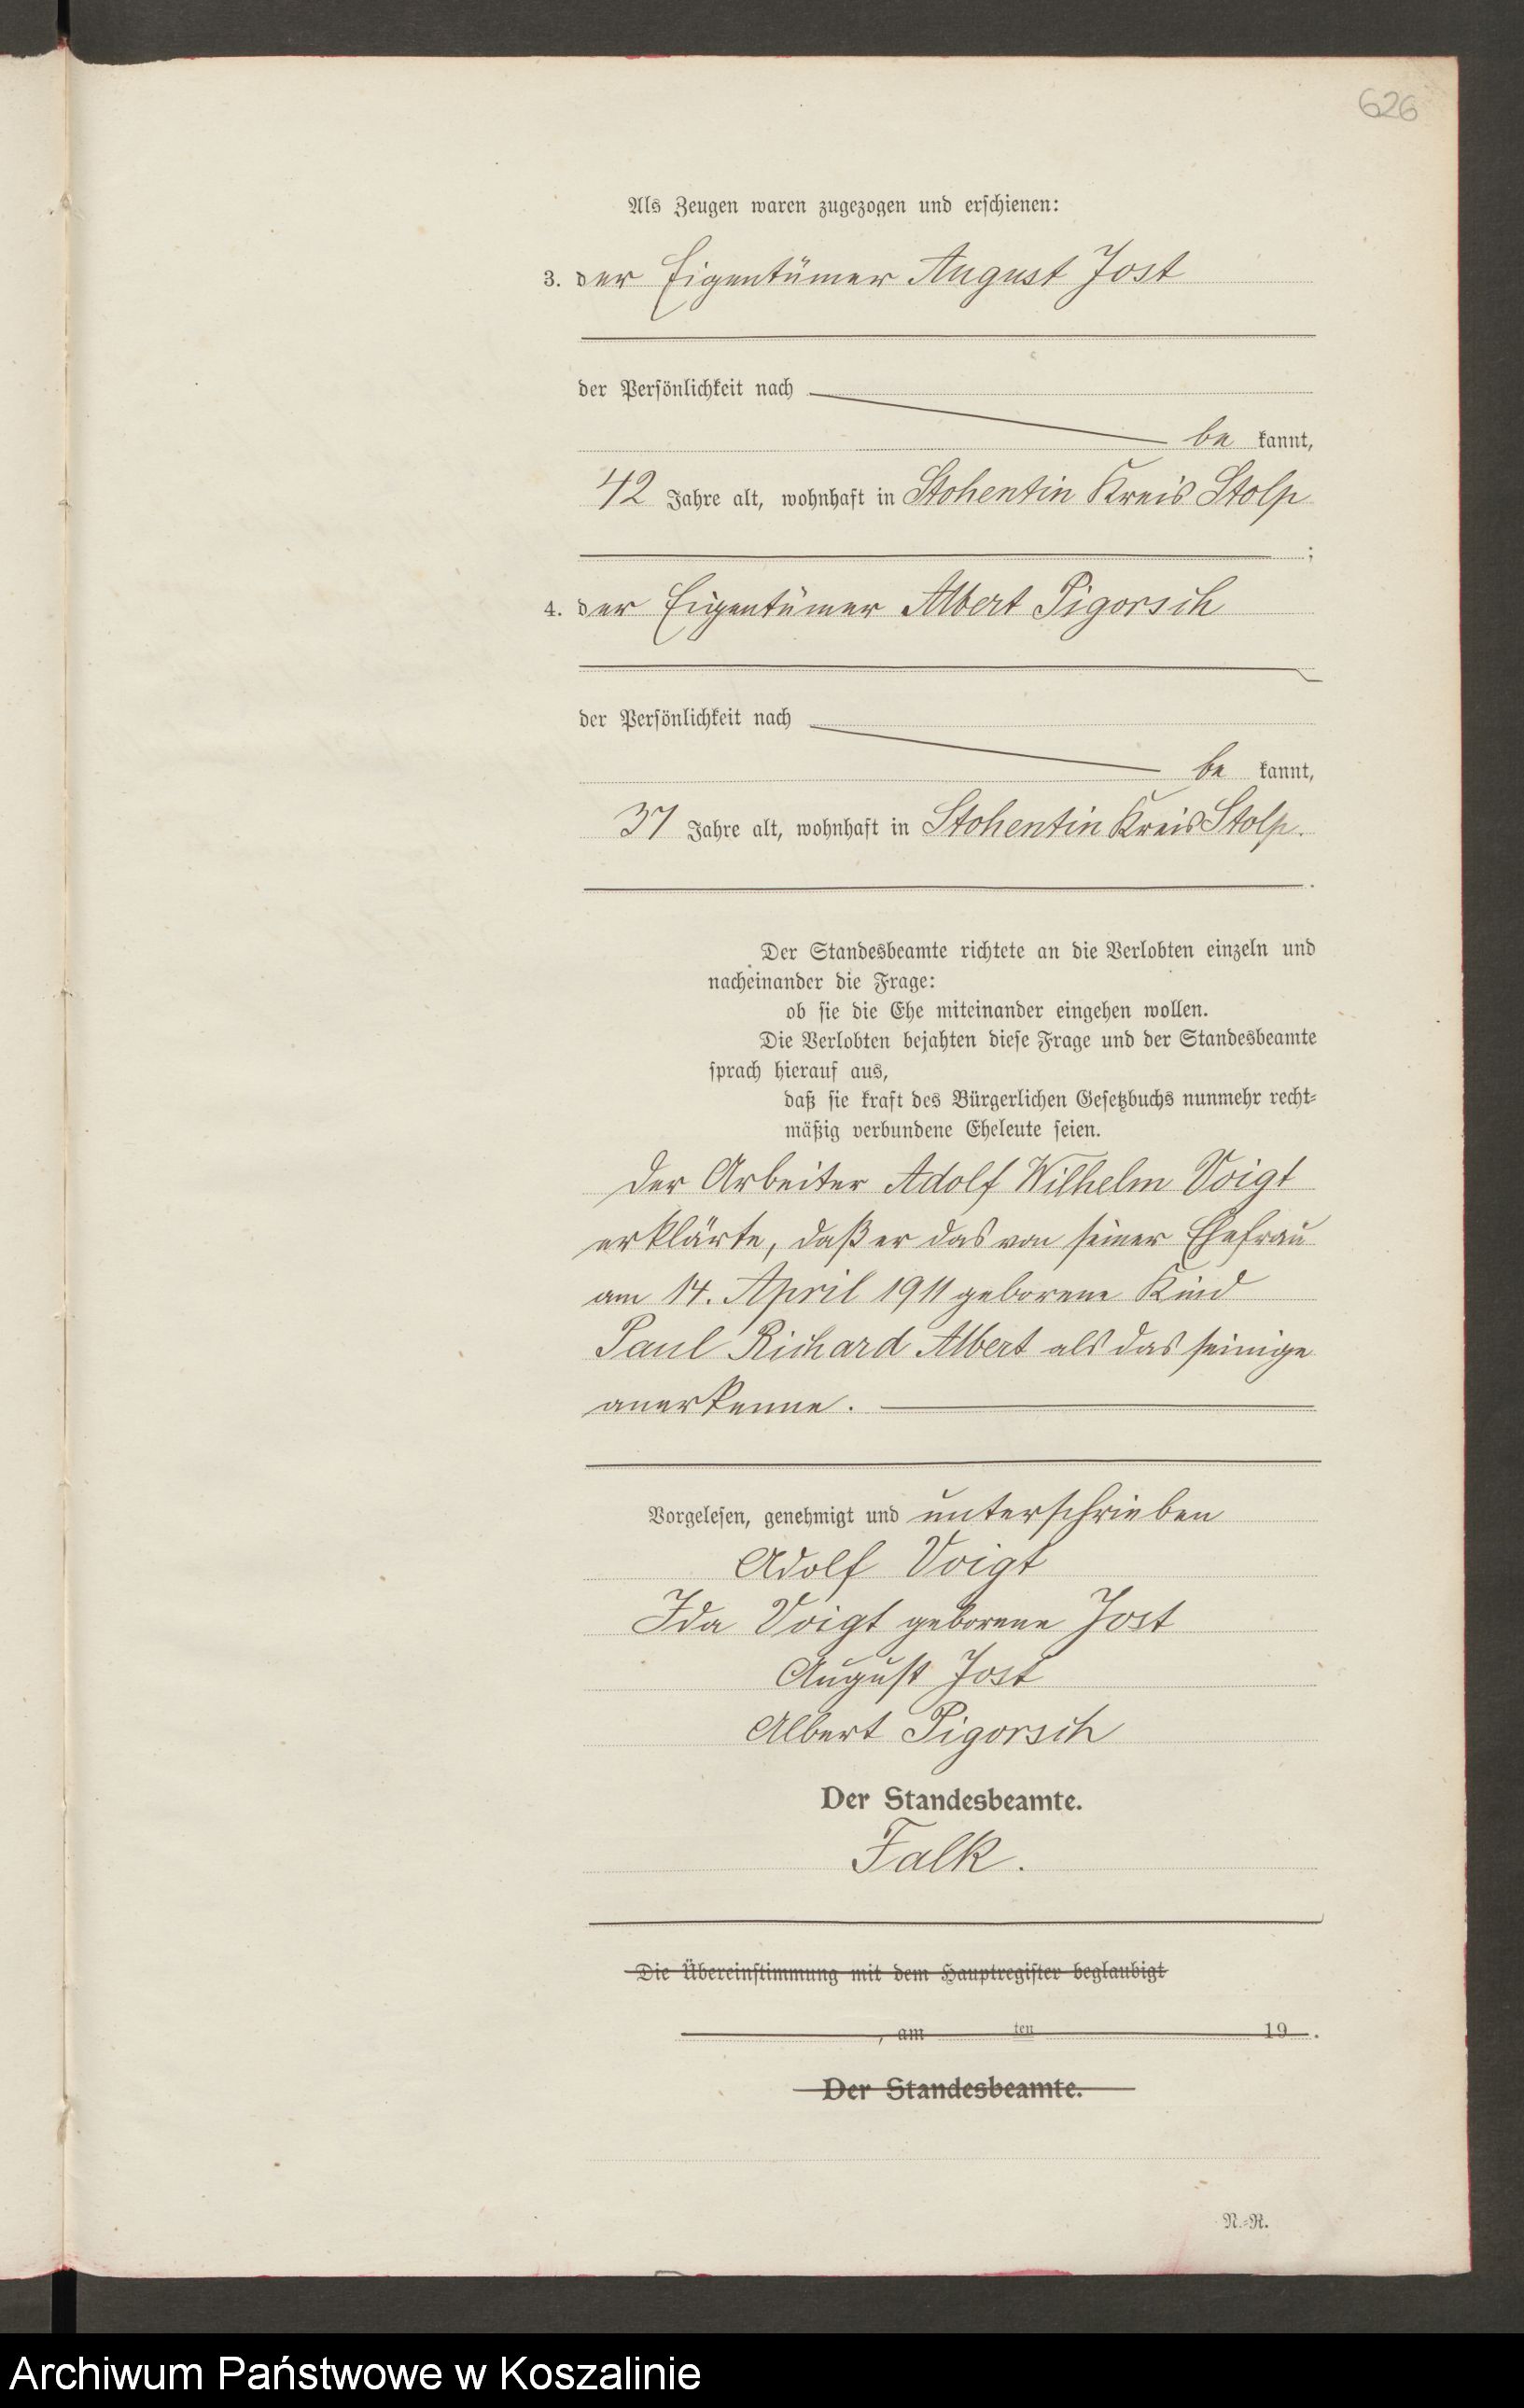 626
Als Zeugen waren zugezogen und erschienen:
3. der Eigentümer August Jost
der Persönlichkeit nach
be kannt,
42 Jahre alt, wohnhaft in Stohentin Kreis Stolp
;
4. der Eigentümer Albert Pigorsch
der Persönlichkeit nach
be kannt,
37 Jahre alt, wohnhaft in Stohentin Kreis Stolp.
.
Der Standesbeamte richtete an die Verlobten einzeln und
nacheinander die Frage:
ob sie die Ehe miteinander eingehen wollen.
Die Verlobten bejahten diese Frage und der Standesbeamte
sprach hierauf aus,
daß sie kraft des Bürgerlichen Gesetzbuchs nunmehr recht-
mäßig verbundene Eheleute seien.
Der Arbeiter Adolf Wilhelm Voigt
erklärte, daß er das von seiner Ehefrau
am 14. April 1911 geborene Kind
Paul Richard Albert als das seinige
anerkenne.
Vorgelesen, genehmigt und unterschrieben
Adolf Voigt
Ida Voigt geborene Jost
August Jost
Albert Pigorsch
Der Standesbeamte.
Falk.
Die Übereinstimmung mit dem Hauptregister beglaubigt
, am ten 19 .
Der Standesbeamte.
N.-R.
Archiwum Państwowe w Koszalinie